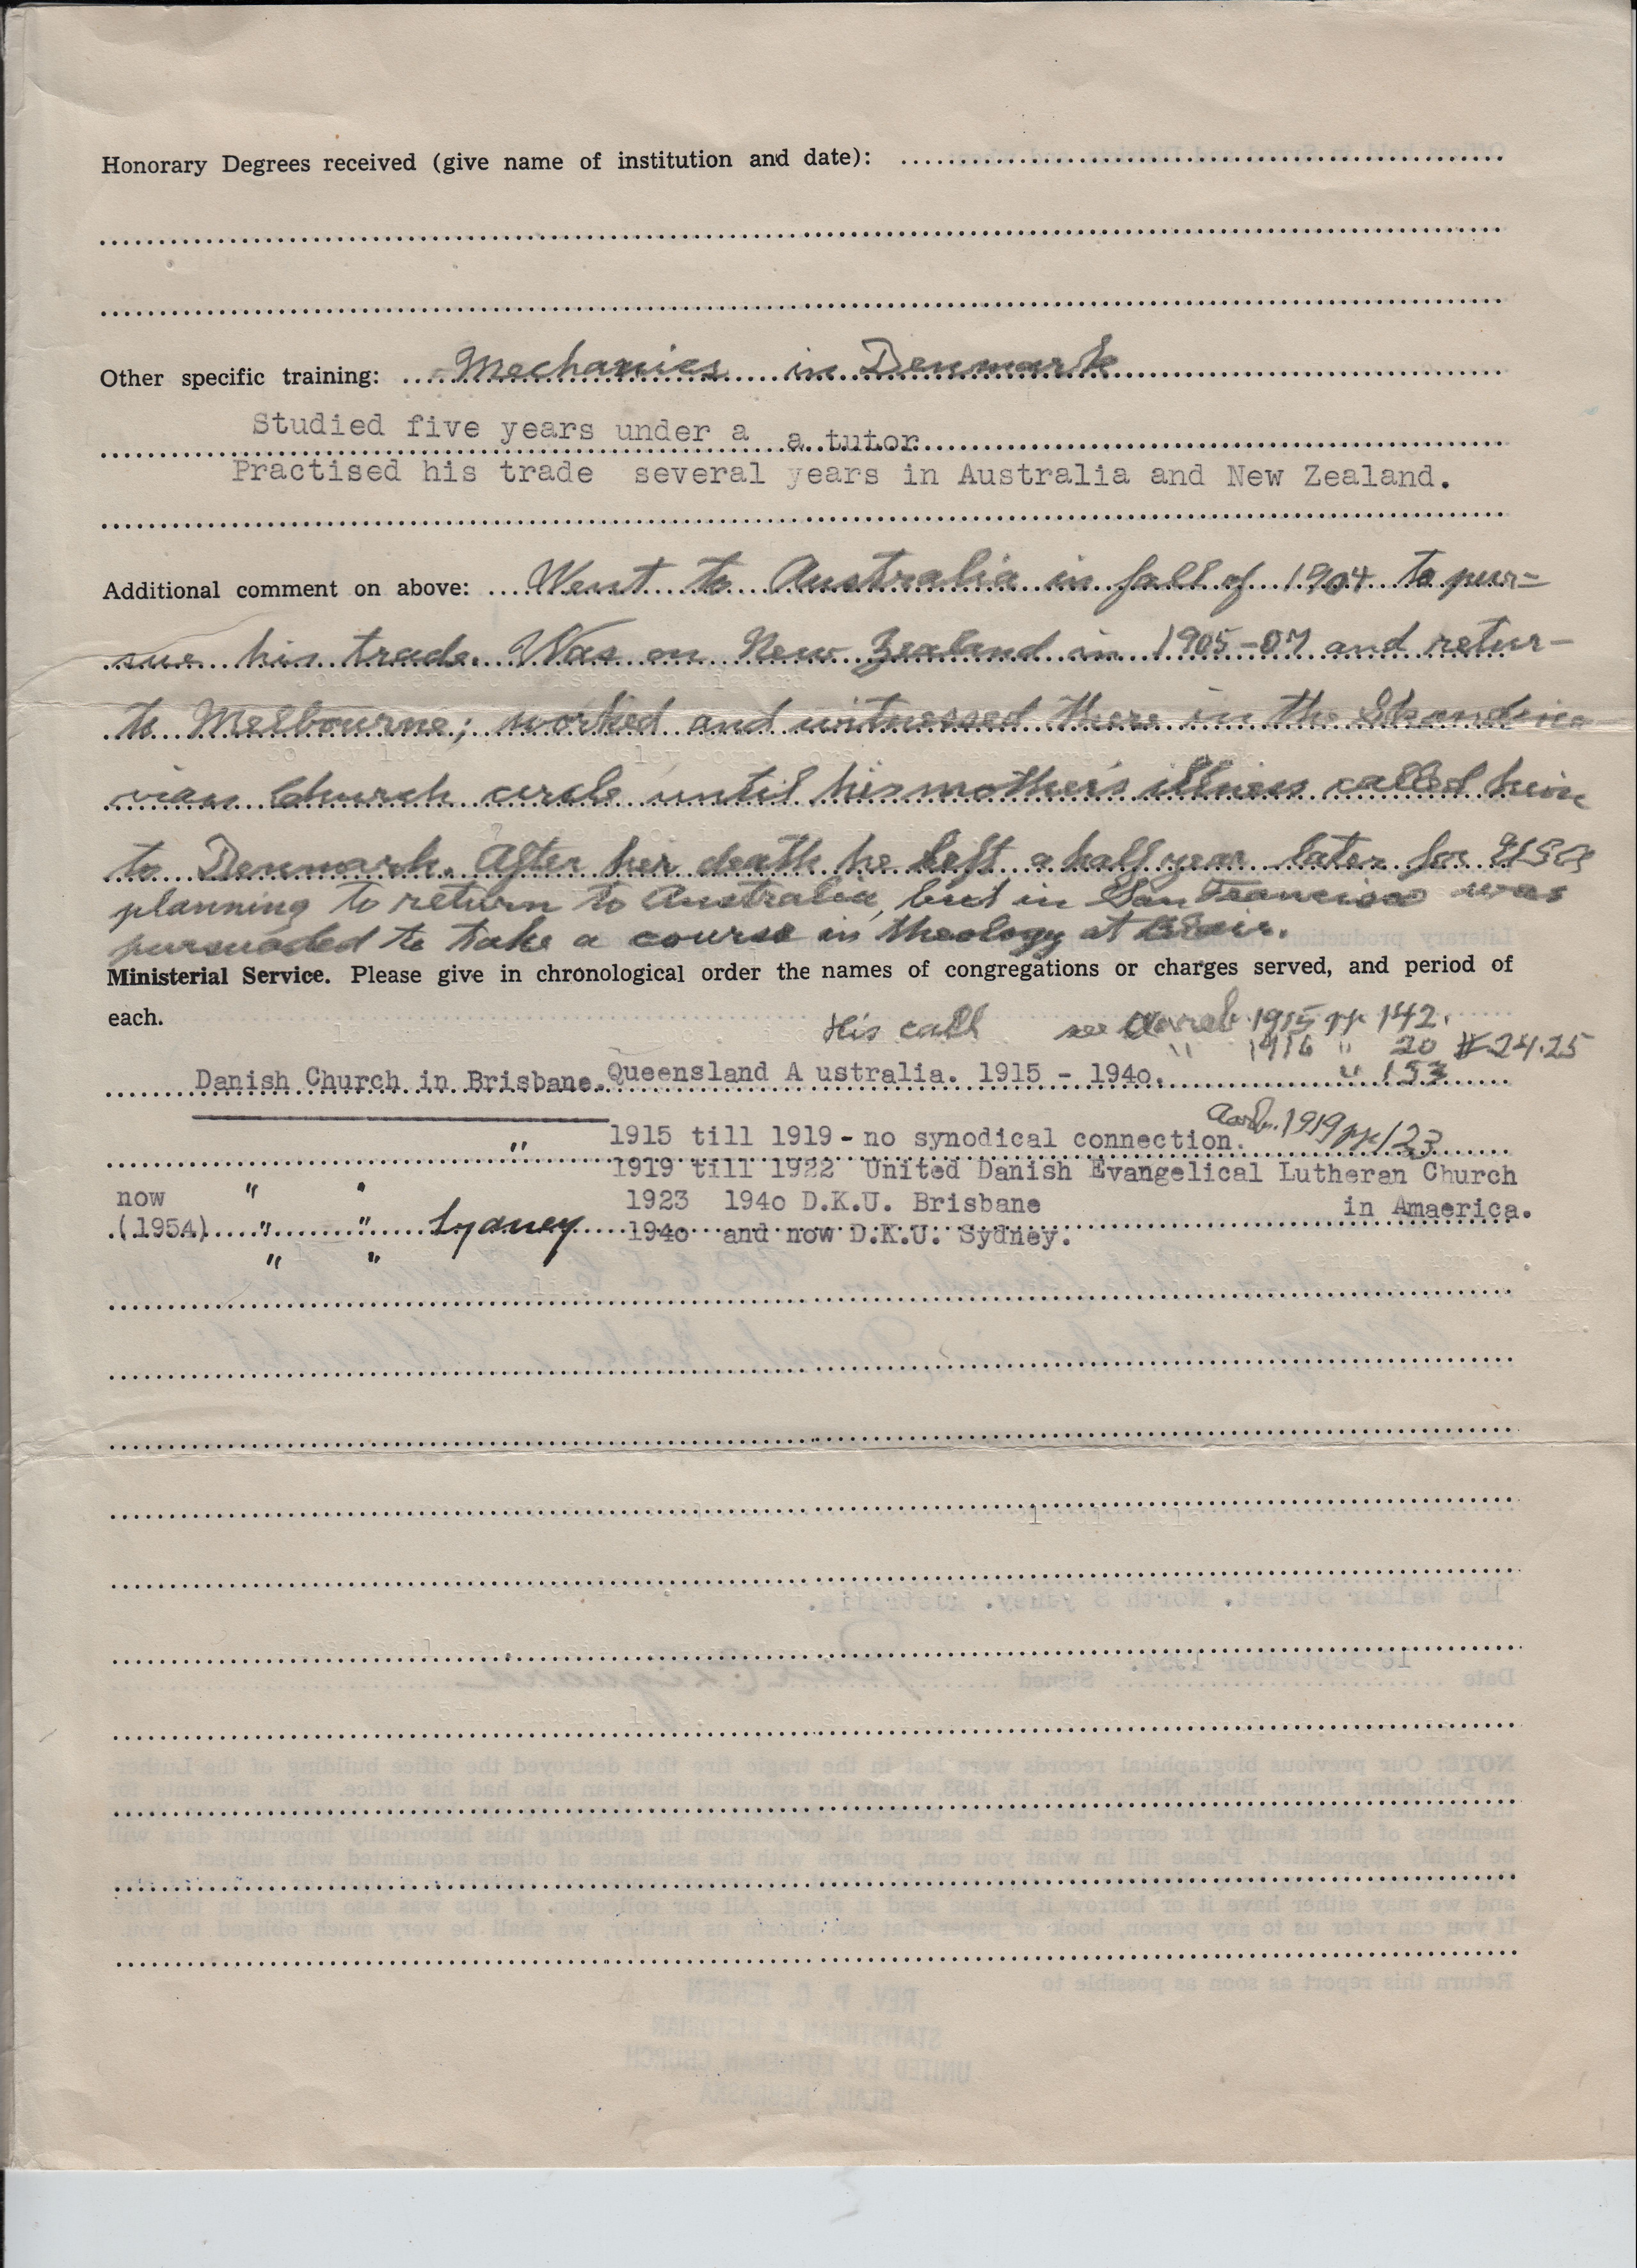 Honorary Degrees received (give name of institution and date):
Other specific training: Mechanics in Denmark
Studied five years under a a tutor
Practised his trade several years in Australia and New Zealand.
Additional comment on above: Went to Australia in fall of 1904 to pur=
sue his trade. Was on New Zealand in 1905-07 and retur-
to Melbourne; worked and witnessed there in the Skandina
vian Church circle until his mother's illness called him
to Denmark. After her death he left a half year later for USA
planning to return to Australia, but in San Francisco was
pursuaded to take a course in theology at Blair.
Ministerial Service. Please give in chronological order the names of congregations or charges served, and period of
each.
His call see 1915 pp 142.
" 1916 " 20 #24.25
Danish Church in Brisbane. Queensland A ustralia. 1915 - 194o. " 153
Aarb. 1919 pp 123
" 1915 till 1919 - no synodical connection.
1919 till 1922 United Danish Evangelical Lutheran Church
now " " 1923 194o D.K.U. Brisbane in Amaerica.
(1954) " " Sydney 194o and now D.K.U. Sydney.
" "